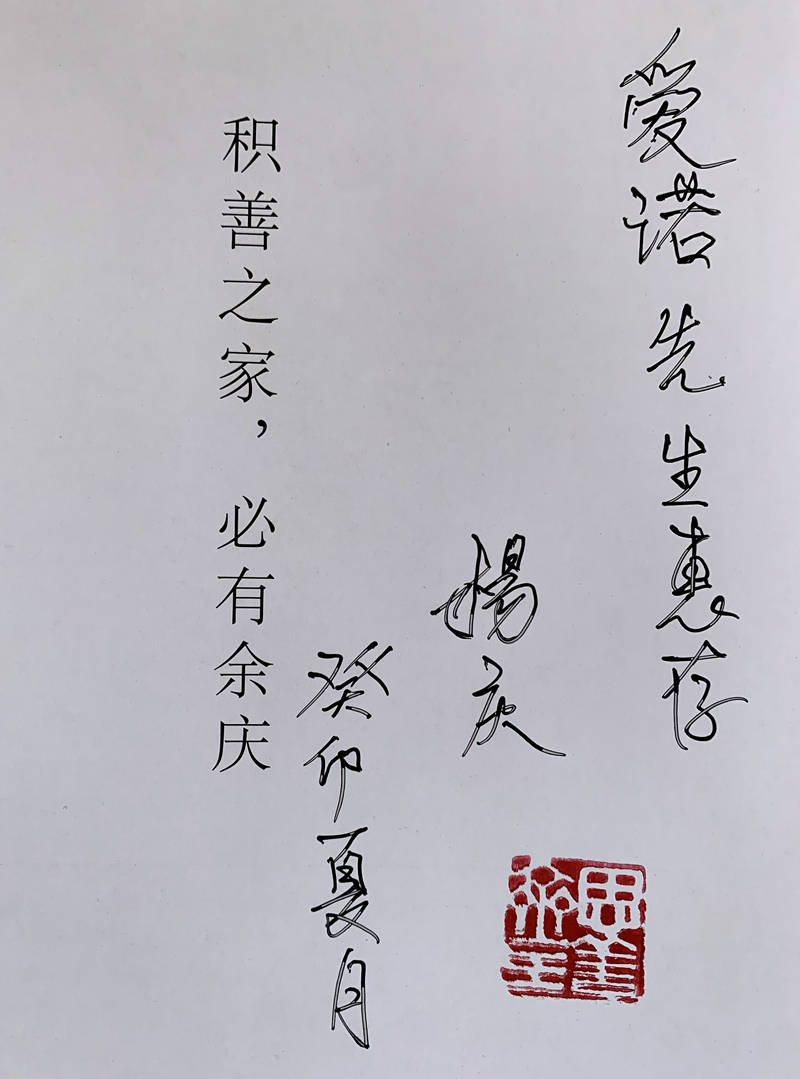 爱诺先生惠存
楊庆
癸卯夏月
积善之家，必有余庆